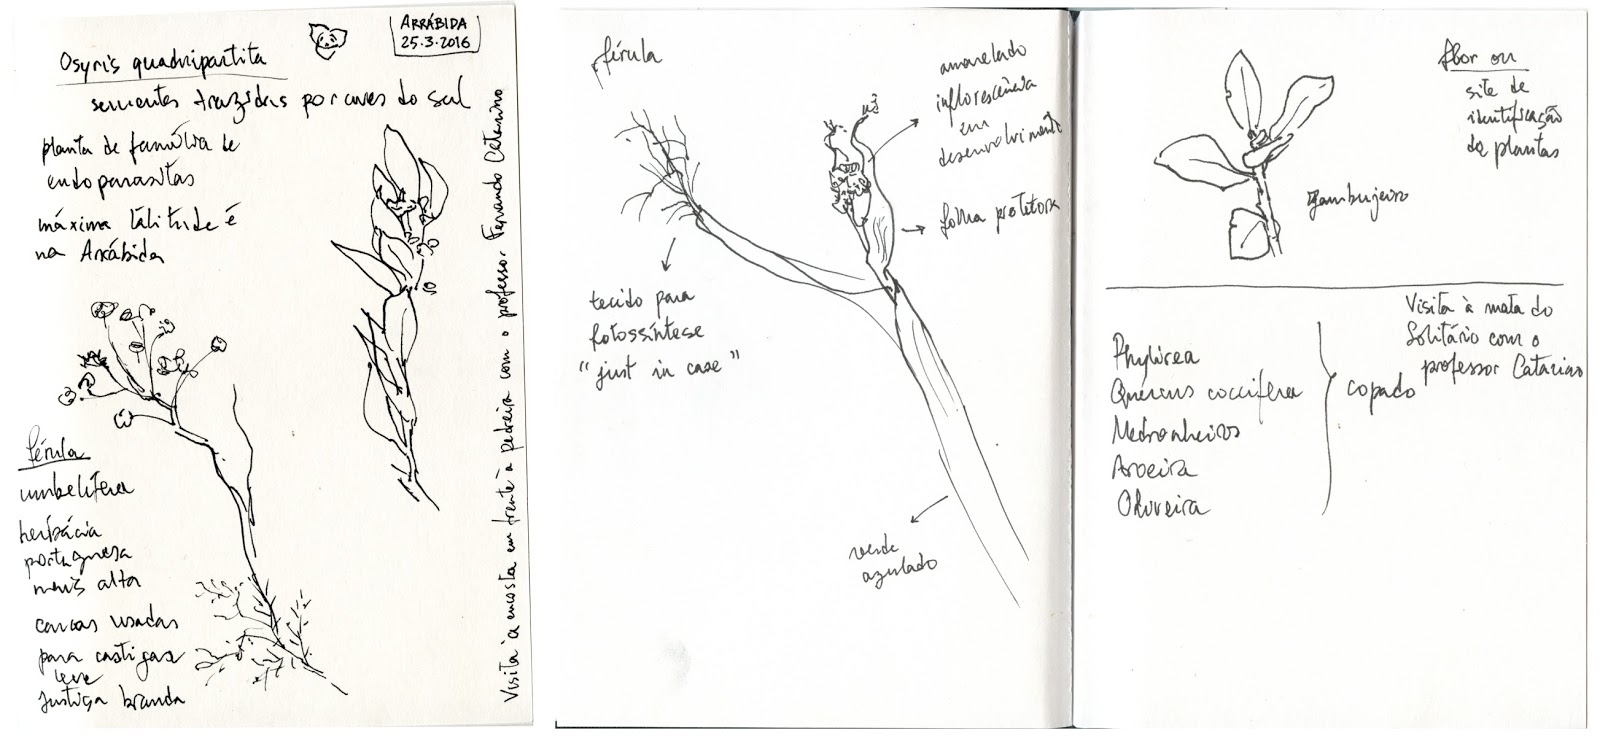 ARRÁBIDA
25.3.2016
Osyris quadripartita
sementes trazidas por aves do sul
planta de família de
endoparasitas
máxima latitude é
na Arrábida
férula
umbelífera
herbácia
portuguesa
mais alta
canas usadas
para castigar
leve
justiça branda
Visita à encosta em frente à pedreira com o professor Fernando Catarino
férula
amarelado
inflorescência
em
desenvolvimento
folha protetora
tecido para
fotossíntese
"just in case"
verde
azulado
flor on
site de
identificação
de plantas
Zambujeiro
Visita à mata do
Solitário com o
professor Catarino
Phylirea
Quercus coccifera
Medronheiros
Aroeira
Oliveira
copado